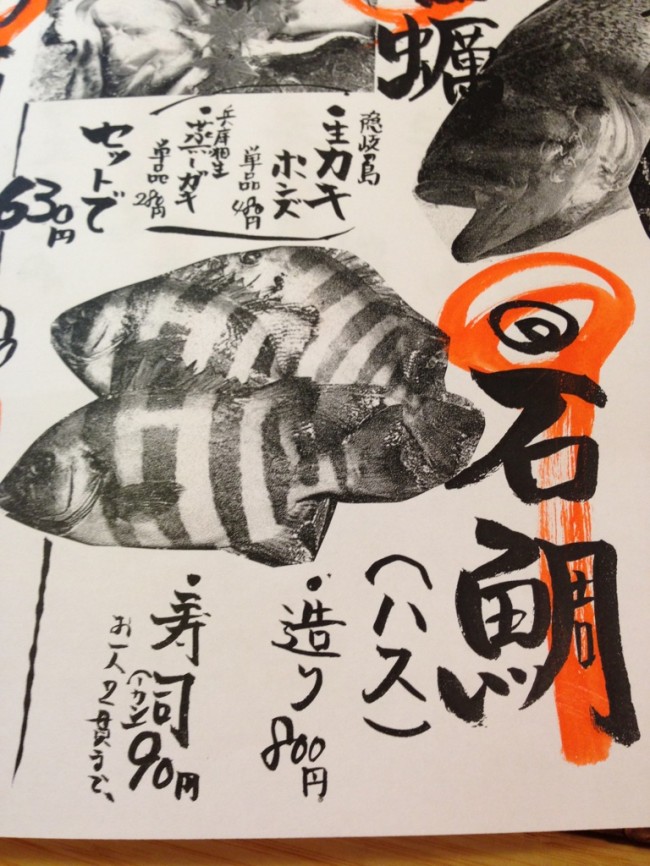 蠣
隠岐の島
・生カキ
ポンズ
単品 480円
兵庫相生
・蒸しガキ
単品 280円
セットで
630円
◎石鯛
(ハス)
・造り 800円
・寿司(一カン)90円
お一人2貫まで、